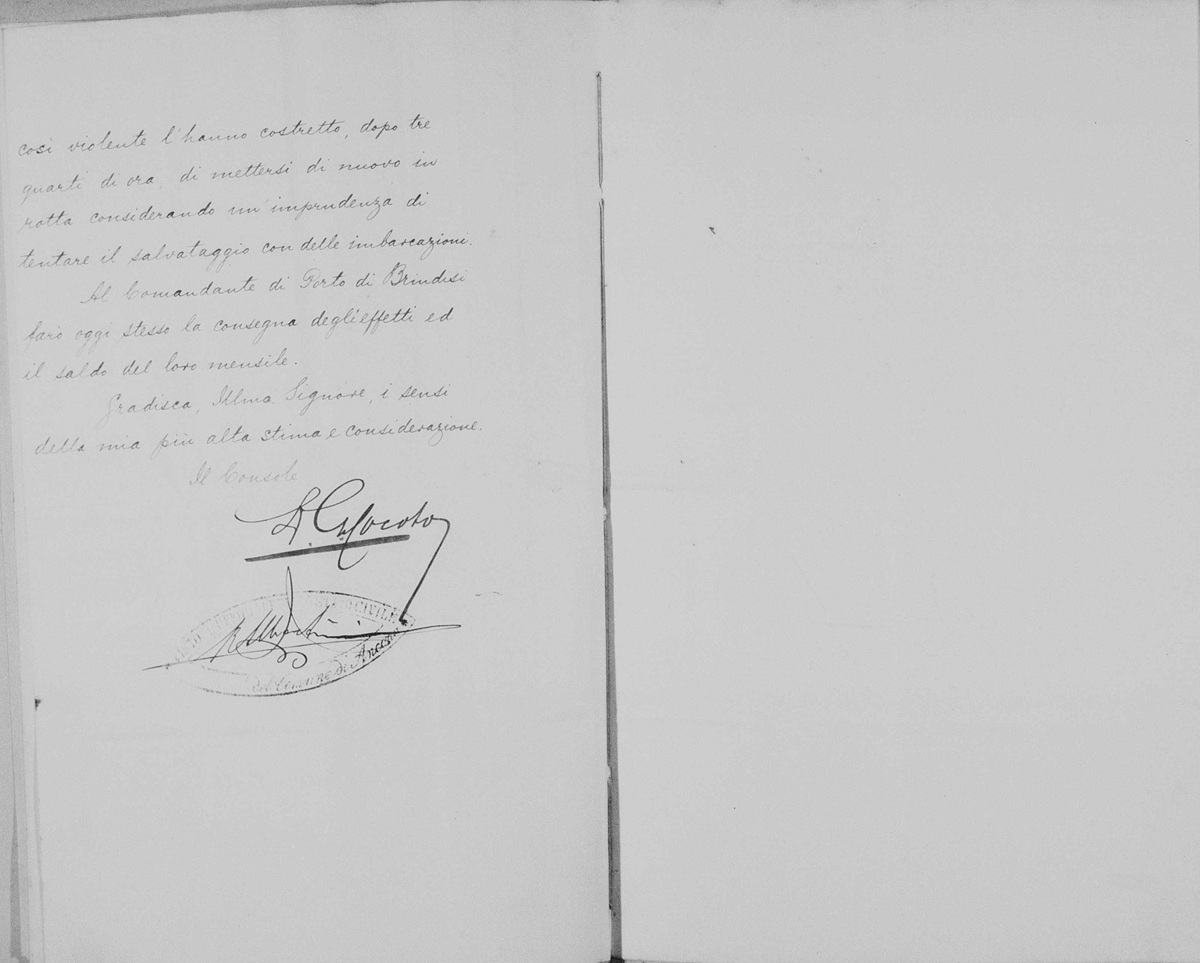 così violente l'hanno costretto, dopo tre
quarti di ora, di mettersi di nuovo in
rotta considerando un'imprudenza di
tentare il salvataggio con delle imbarcazioni.
Al Comandante di Porto di Brindisi
farò oggi stesso la consegna degli effetti ed
il saldo del loro mensile.
Gradisca, Illmo Signore, i sensi
della mia più alta stima e considerazione.
Il Console
CIVILE
del Comune di Ancona